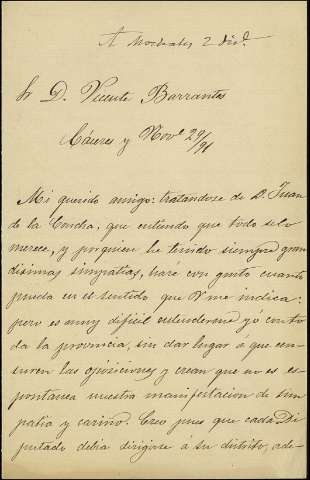 A Morales 2 Dic.
Sr D. Vicente Barrantes
Cáceres y Nov.e 29/91
Mi querido amigo: tratandose de D. Juan
de la Concha, que entiendo que todo selo
merece, y por quien he tenido siempre gran
disimas simpatias, haré con gusto cuanto
pueda en el sentido que V me indica:
pero es muy dificil entenderme yó con to
da la provincia, sin dar lugar á que cen-
suren las oposiciones y crean que no es es-
pontanea nuestra manifestacion de sim
patia y cariño. Creo pues que cada Di
putado debia dirigirse á su distrito, ade-